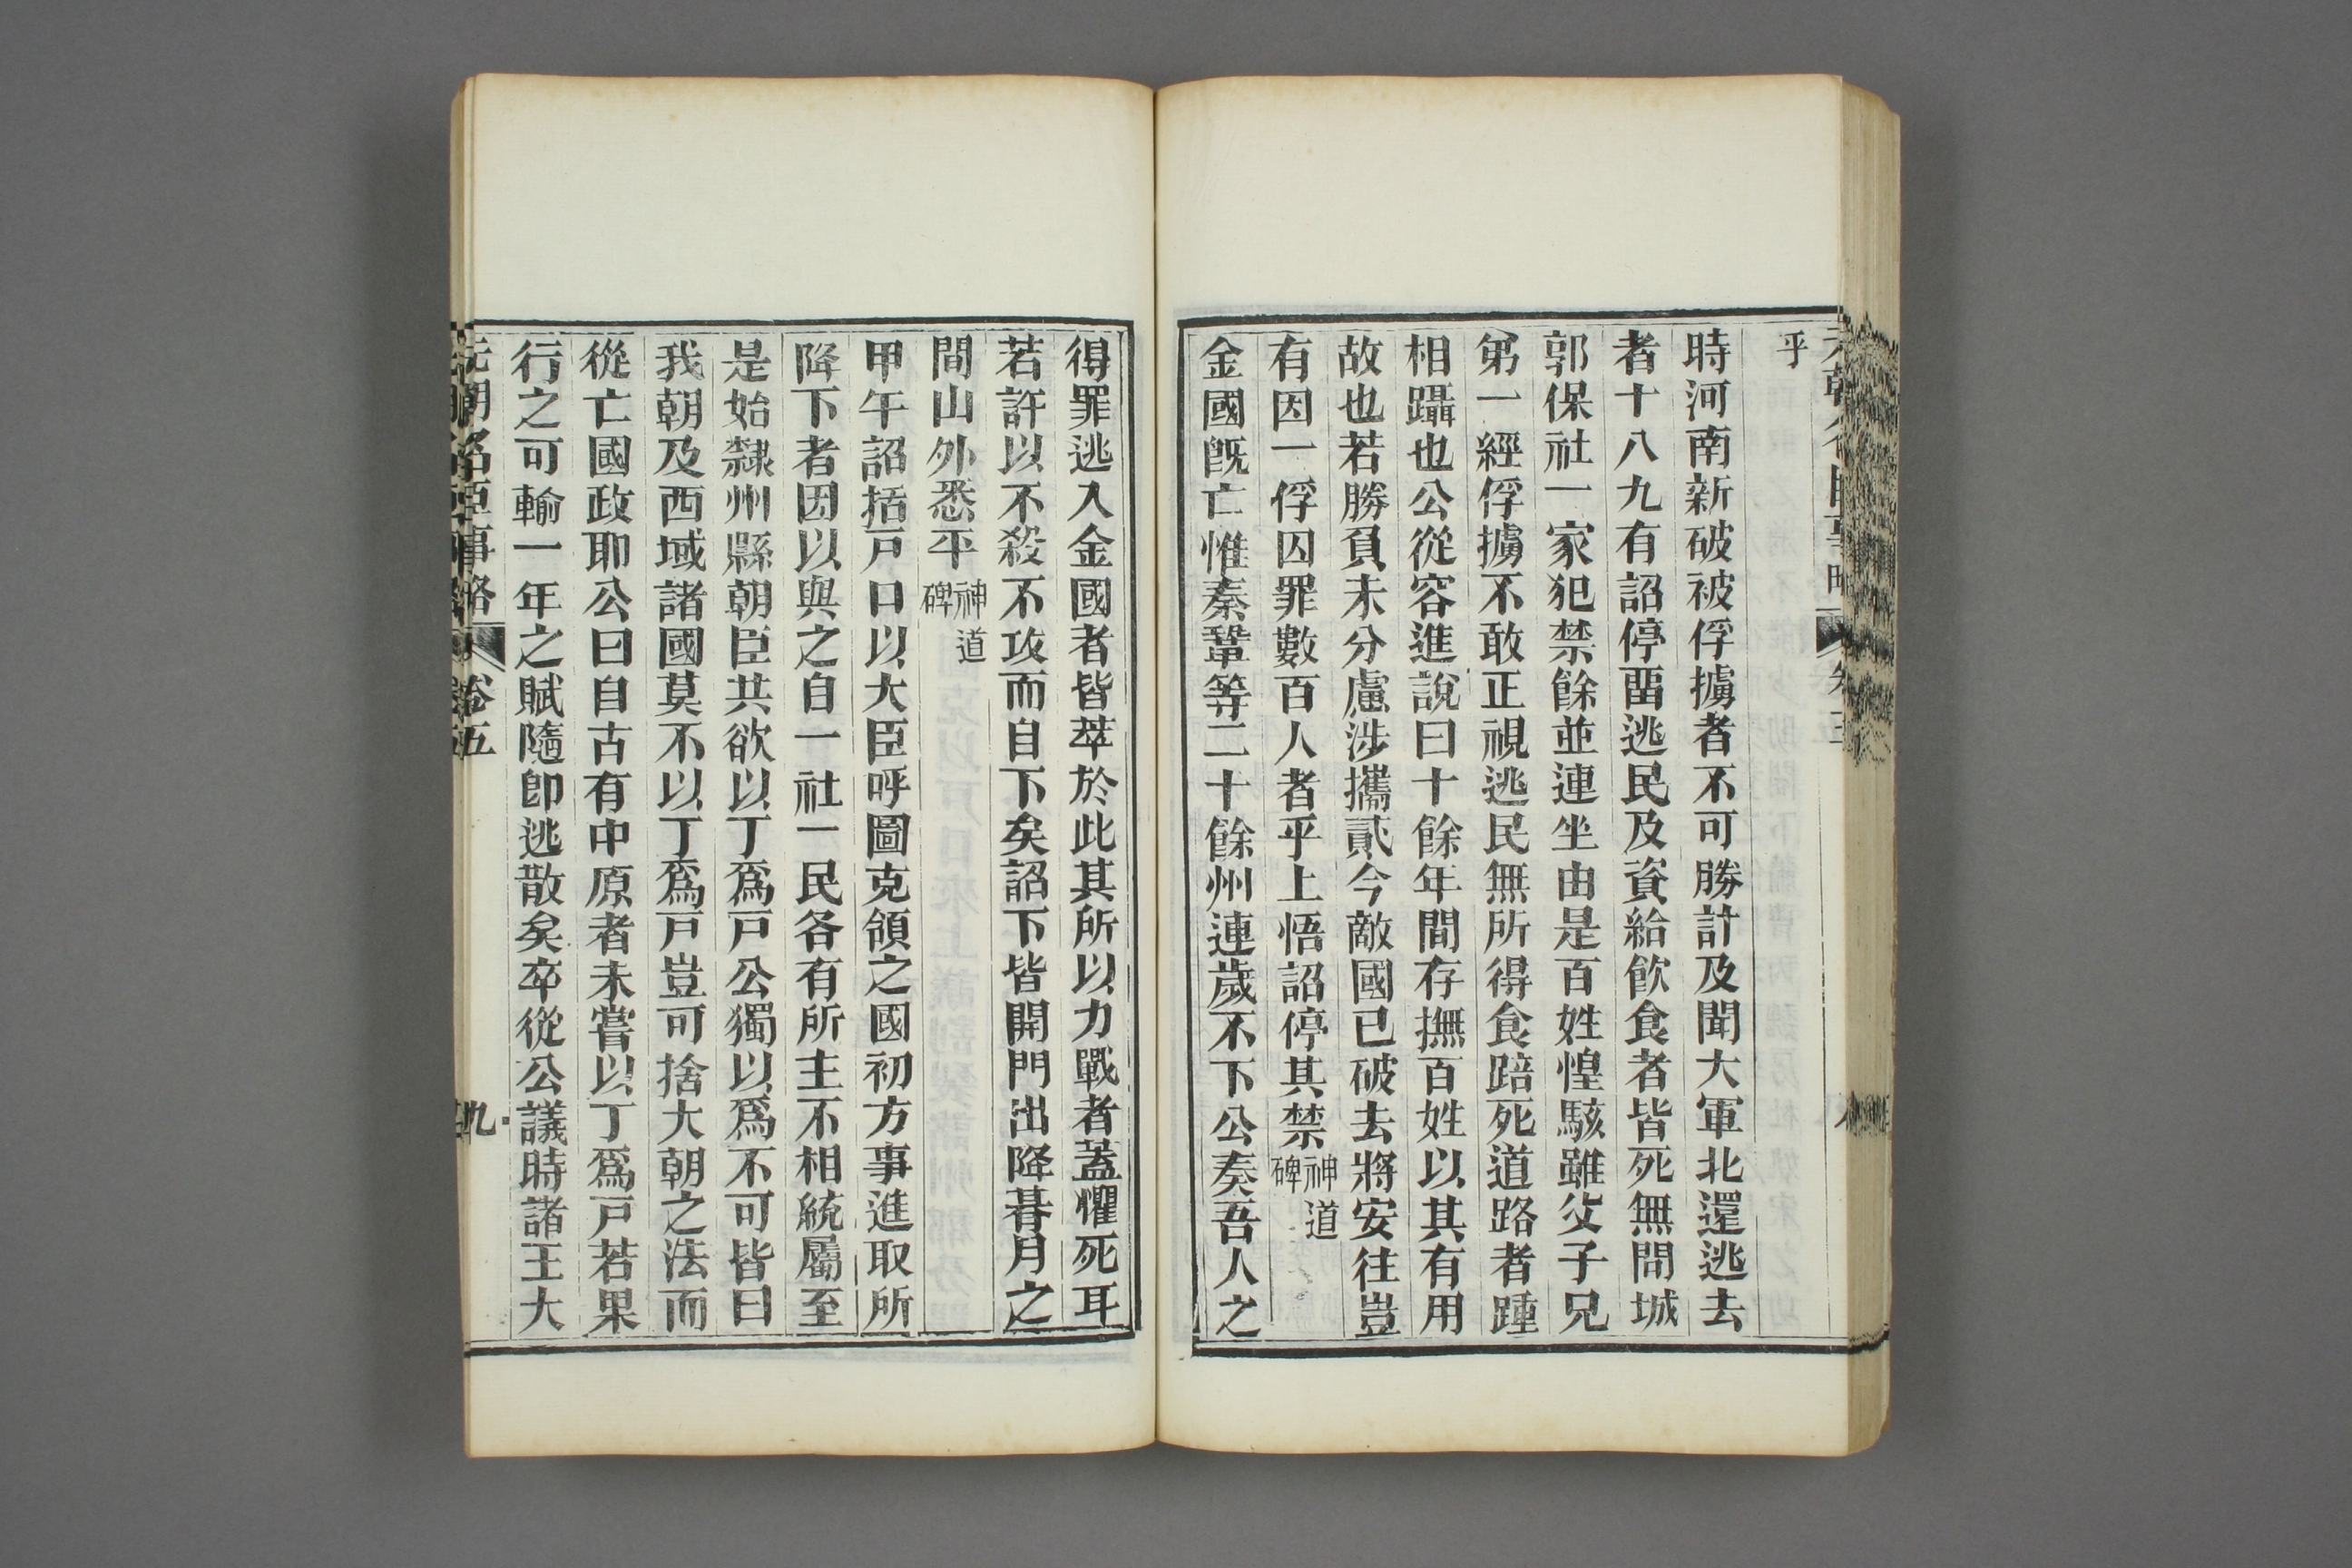 乎
時河南新破被俘擄者不可勝計及聞大軍北還逃去
者十八九有詔停畱逃民及資給飲食者皆死無問城
郭保社一家犯禁餘並連坐由是百姓惶駭雖父子兄
弟一經俘擄不敢正視逃民無所得食踣死道路者踵
相躡也公從容進說曰十餘年間存撫百姓以其有用
故也若勝負未分慮涉攜貳今敵國已破去將安往豈
有因一俘囚罪數百人者乎上悟詔停其禁神道碑
金國旣亡惟秦鞏等二十餘州連歲不下公奏吾人之
得罪逃入金國者皆萃於此其所以力戰者蓋懼死耳
若許以不殺不攻而自下矣詔下皆開門出降朞月之
間山外悉平神道碑
甲午詔括戸口以大臣呼圖克領之國初方事進取所
降下者因以與之自一社一民各有所主不相統屬至
是始隸州縣朝臣共欲以丁爲戸公獨以爲不可皆曰
我朝及西域諸國莫不以丁爲戸豈可捨大朝之法而
從亡國政耶公曰自古有中原者未嘗以丁爲戸若果
行之可輸一年之賦隨卽逃散矣卒從公議時諸王大
元朝名臣事略 卷五 九